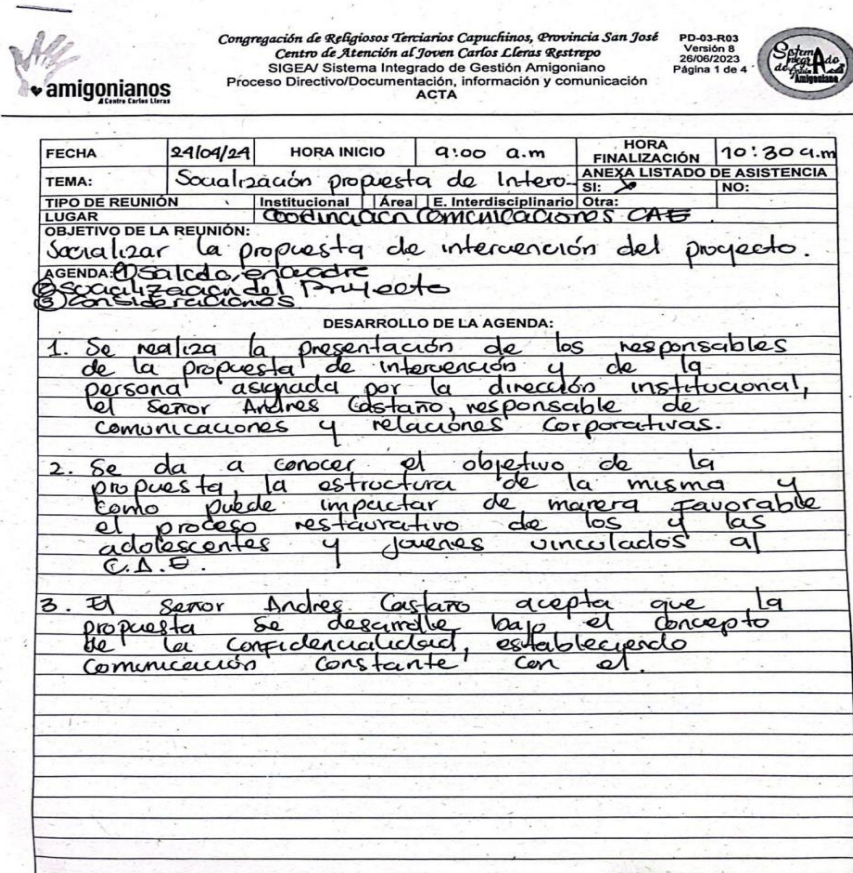 Congregación de Religiosos Terciarios Capuchinos, Provincia San José
Centro de Atención al Joven Carlos Lleras Restrepo
SIGEA/ Sistema Integrado de Gestión Amigoniano
Proceso Directivo/Documentación, información y comunicación
ACTA
PD-03-R03
Versión 8
26/06/2023
Página 1 de 4
Sistema
Integrado
de Gestión
Amigoniano
amigonianos
Centro Carlos Lleras
FECHA 24/04/24 HORA INICIO 9:00 a.m HORA FINALIZACIÓN 10:30 a.m
TEMA: Socialización propuesta de Interv- ANEXA LISTADO DE ASISTENCIA
SI: X NO:
TIPO DE REUNIÓN Institucional Área E. Interdisciplinario Otra:
LUGAR Coordinación Comunicaciones CAE.
OBJETIVO DE LA REUNIÓN:
Socializar la propuesta de intervención del proyecto.
AGENDA: ① Saludo, encuadre
② Socialización del Proyecto
③ Consideraciones
DESARROLLO DE LA AGENDA:
1. Se realiza la presentación de los responsables
de la propuesta de intervención y de la
persona asignada por la dirección institucional,
el Señor Andres Castaño, responsable de
comunicaciones y relaciones Corporativas.
2. Se da a conocer el objetivo de la
propuesta, la estructura de la misma y
como puede impactar de manera Favorable
el proceso restaurativo de los y las
adolescentes y jovenes vinculados al
C.A.E.
3. El Señor Andres Castaño acepta que la
propuesta se desarrolle bajo el concepto
de la confidencialidad, estableciendo
comunicación constante con el.